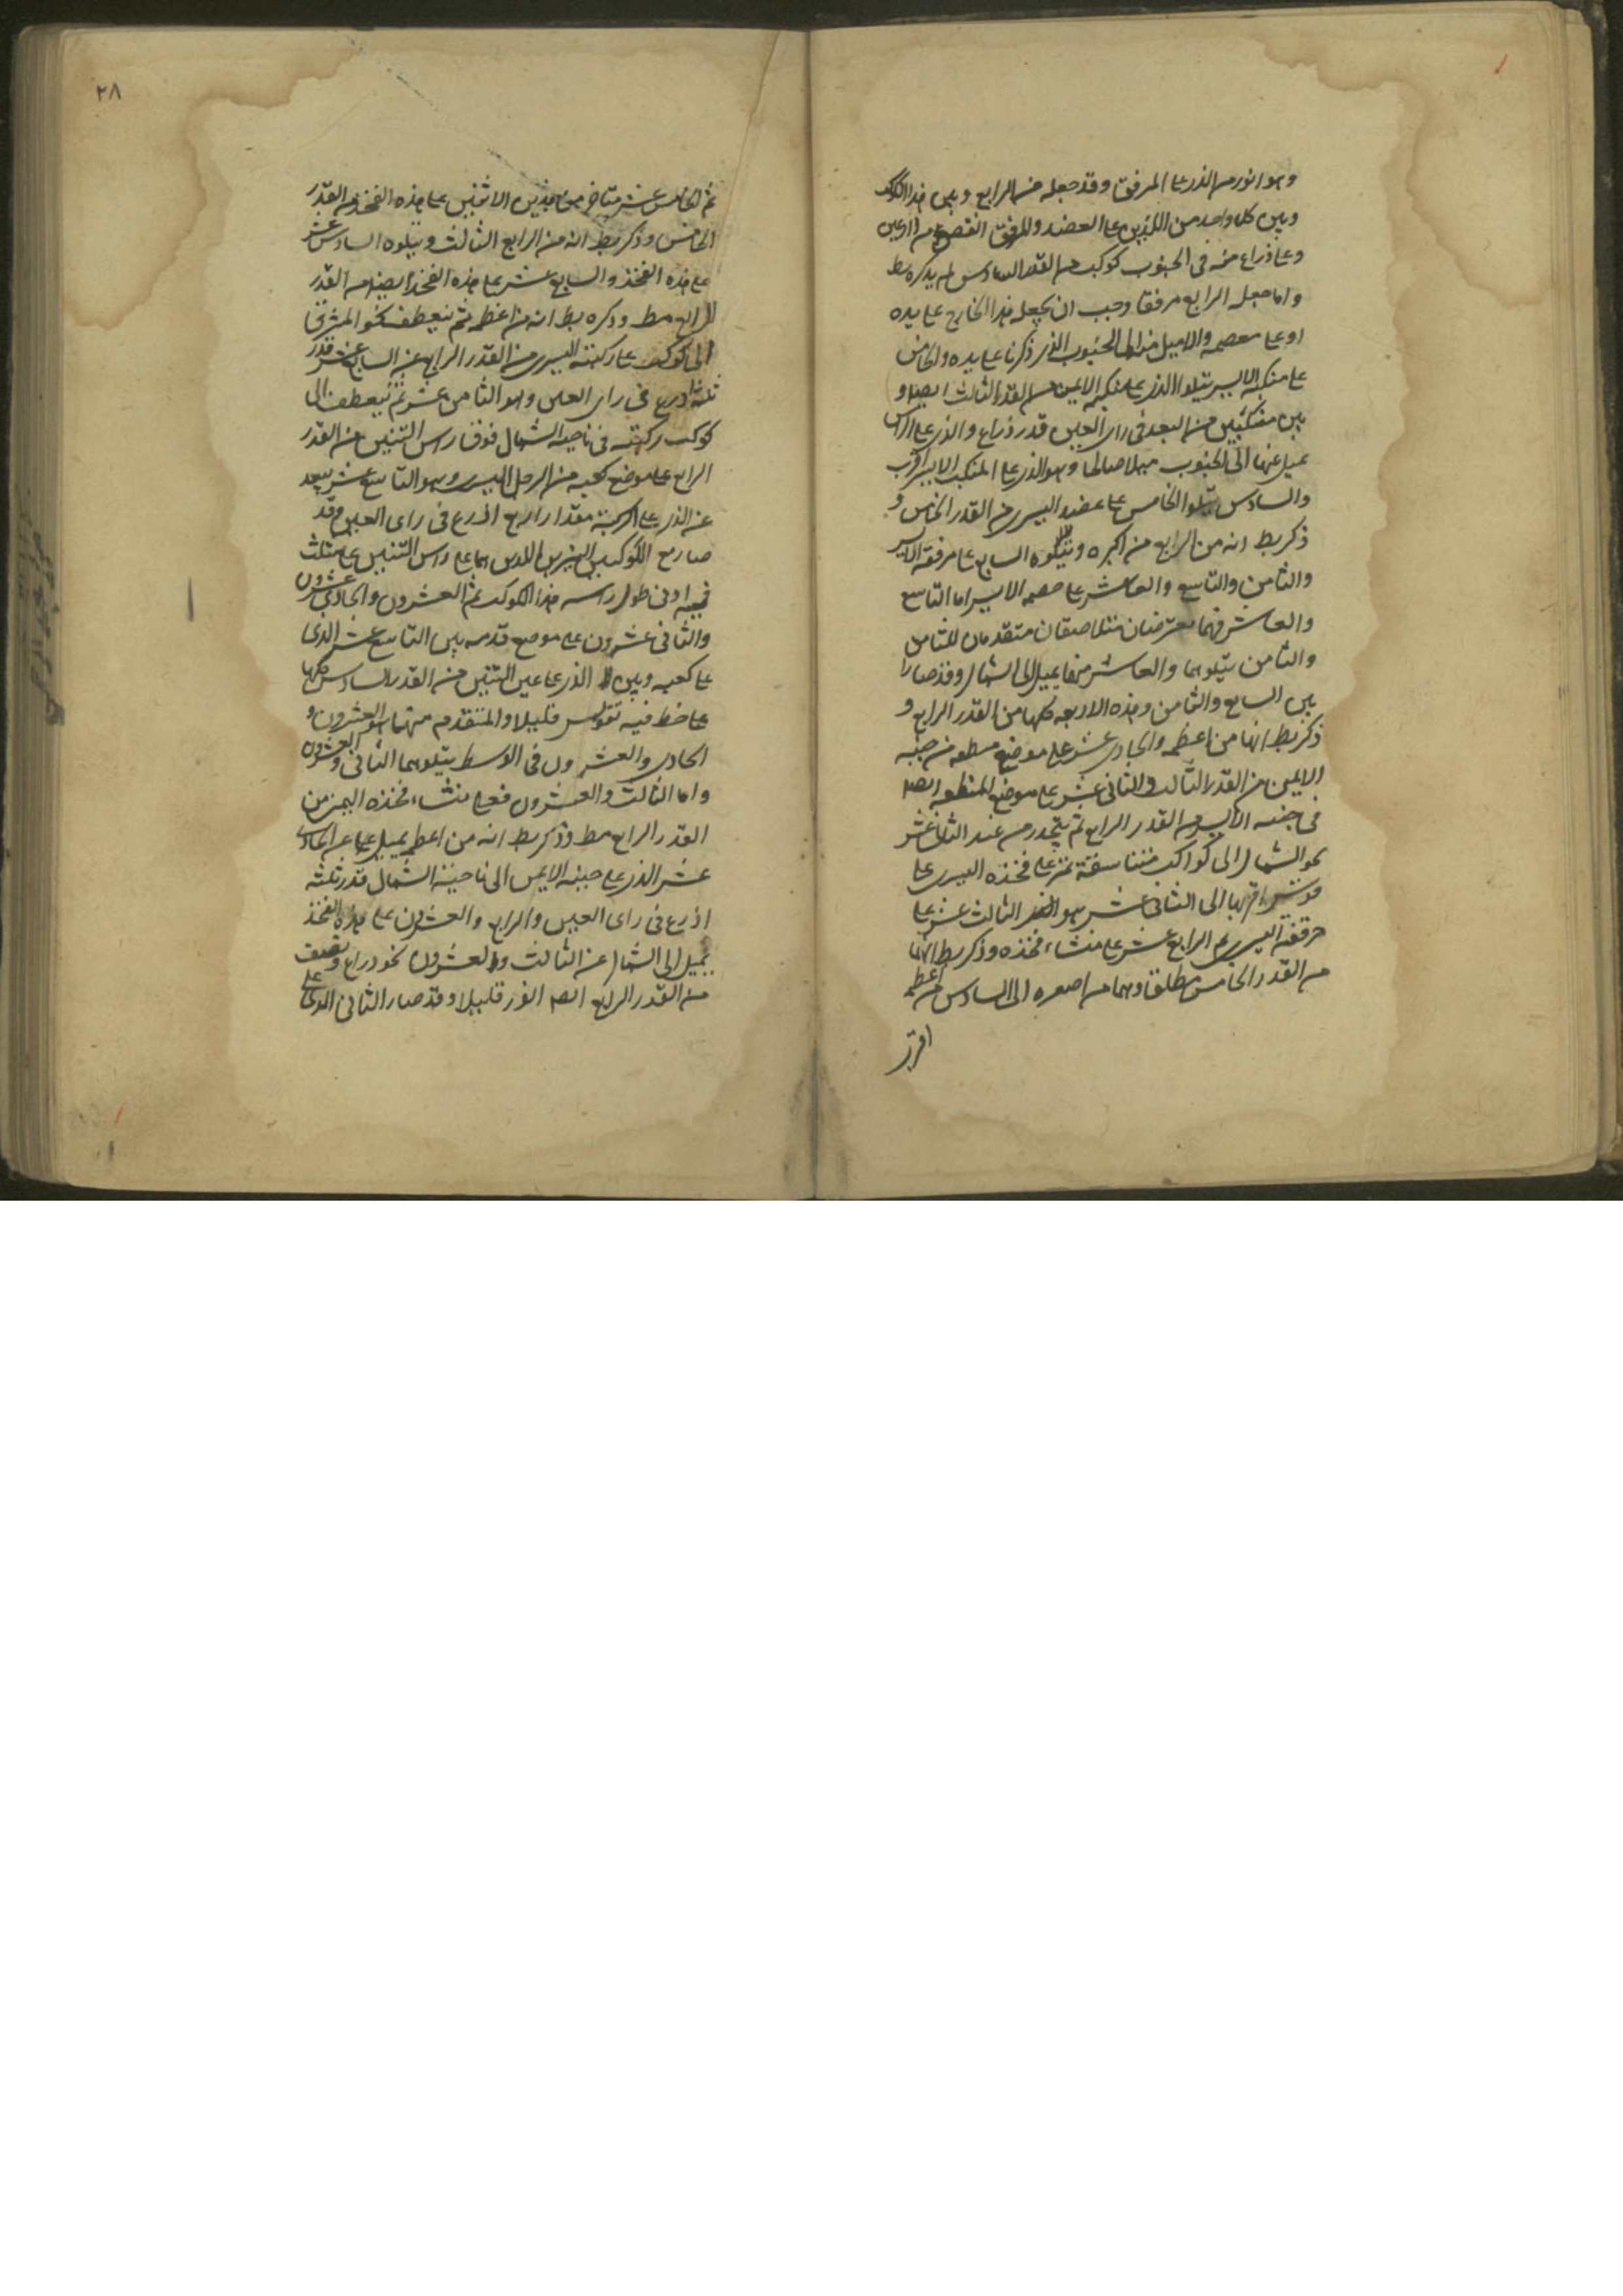 وهو انور من الذي على المرفق وقد جعله من الرابع وبين هذا الكوكب
وبين كل واحد من اللذين على العضد والمرفق انقص من ذراعين
وعلى ذراع منه في الجنوب كوكب من القدر السادس لم يذكره بط
واما جعله الرابع مرفقا وجب ان يجعل هذا الخارج على يده
او على معصمه والاميل من الى الجنوب الذي ذكرنا على يده والخامس
على منكبه الايسر يتلوا الذي على منكبه الايمن من القدر الثالث ايضا و
بين منكبين من البعد في راى العين قدر ذراع والذي على الراس
يميل عنها الى الجنوب ميلا صالحا وهو الذي على المنكب الايسر اقرب
والسادس يتلو الخامس على عضده اليسرى من القدر الخامس و
ذكر بط انه من الرابع من اكبره ويتلوه السابع على مرفقه الايسر
والثامن والتاسع والعاشر على معصمه الايسر اما التاسع
والعاشر فهما معترضان متلاصقان متقدمان للثامن
والثامن يتلوهما والعاشر منها يميل الى الشمال وقد صارا
بين السابع والثامن وهذه الاربعه كلها من القدر الرابع و
ذكر بط انها من اعظمه والحادى عشر على موضع منطقه من جنبه
الايمن من القدر الثالث والثانى عشر على موضع المنطقه ايضا
في جنبه الايسر من القدر الرابع ثم ينحدر من عند الثانى عشر
نحو الشمال الى كواكب متناسقة تمر على فخذه اليسرى على
تقويس اقربها الى الثانى عشر هو الثالث عشر على
حرقفته اليسرى ثم الرابع عشر على منشاء فخذه وذكر بط انهما
من القدر الخامس مطلقا وهما من اصغره الى السادس من اعظمه
اقرب
٢٨
ثم الخامس عشر متاخر عن هذين الاثنين على هذه الفخذ من القدر
الخامس وذكر بط انه من الرابع الثالث ويتلوه السادس عشر
على هذه الفخذ والسابع عشر على هذه الفخذ ايضا من القدر
الرابع مط وذكره بط انه من اعظمه ثم ينعطف نحو المشرق
الى كوكب على ركبته اليسرى من القدر الرابع عن السابع عشر قدر
ثلثة اذرع في راى العين وهو الثامن عشر ثم ينعطف الى
كوكب ركبته في ناحيه الشمال فوق راس التنين من القدر
الرابع على موضع كعبه من الرجل اليسرى وهو التاسع عشر يبعد
عن الذي على الركبة مقدار اربع اذرع في راى العين وقد
صار مع الكوكبين النيرين اللذين هما على راس التنين على مثلث
فيه ادنى طول راسه هذا الكوكب ثم العشرون والحادى عشرون
والثانى عشرون على موضع قدمه بين التاسع عشر الذى
على كعبه وبين الذي على عين التنين من القدر السادس كلها
على خط فيه تقويس قليلا والمتقدم منها هو العشرون و
الحادى والعشرون في الوسط يتلوهما الثانى والعشرون
واما الثالث والعشرون فعلى منشاء فخذه اليمنى من
القدر الرابع مط وذكر بط انه من اعظمه يميل عن الحادى
عشر الذي على جنبه الايمن الى ناحية الشمال قدر ثلثه
اذرع في راى العين والرابع والعشرون على هذه الفخذ
يميل الى الشمال عن الثالث والعشرون نحو ذراع ونصف
من القدر الرابع ايضا انور قليلا وقد صار الثانى الذى على